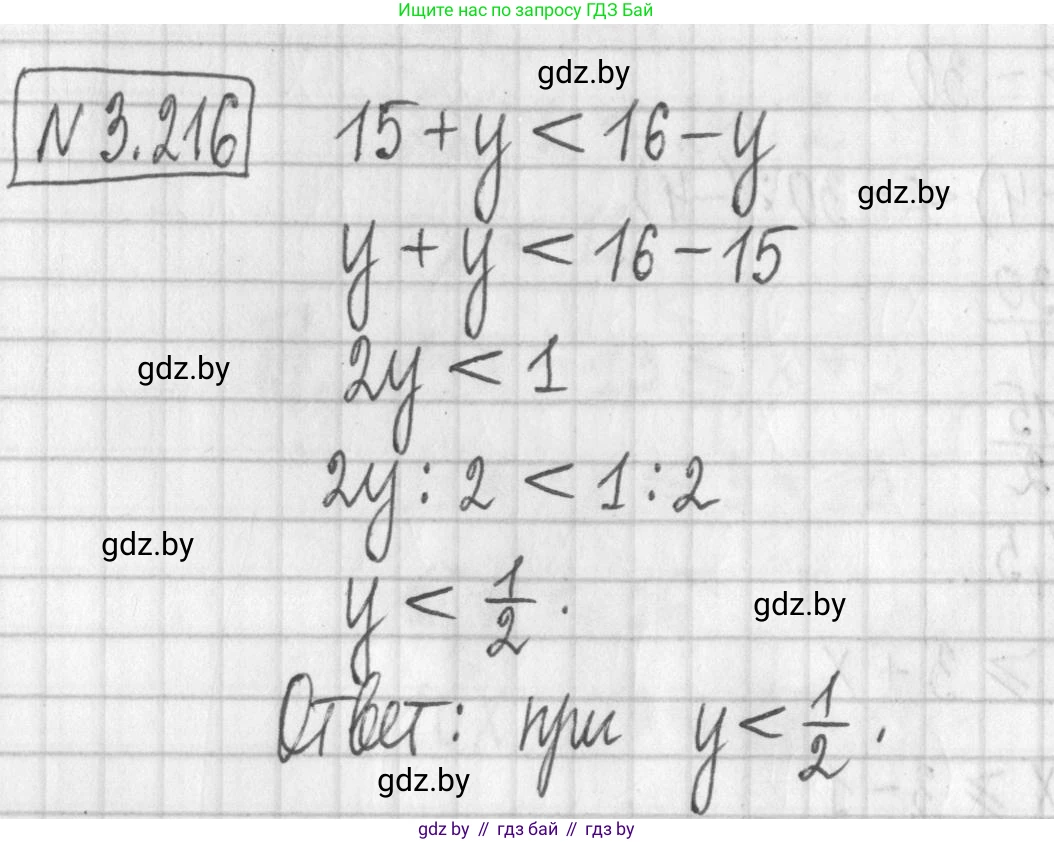 Ищите нас по запросу ГДЗ Бай
gdz.by
N 3.216
15 + y < 16 - y
gdz.by
y + y < 16 - 15
gdz.by
2y < 1
2y : 2 < 1 : 2
gdz.by
y < 1/2 .
gdz.by
Ответ: при y < 1/2 .
gdz.by
gdz by // гдз бай // гдз by